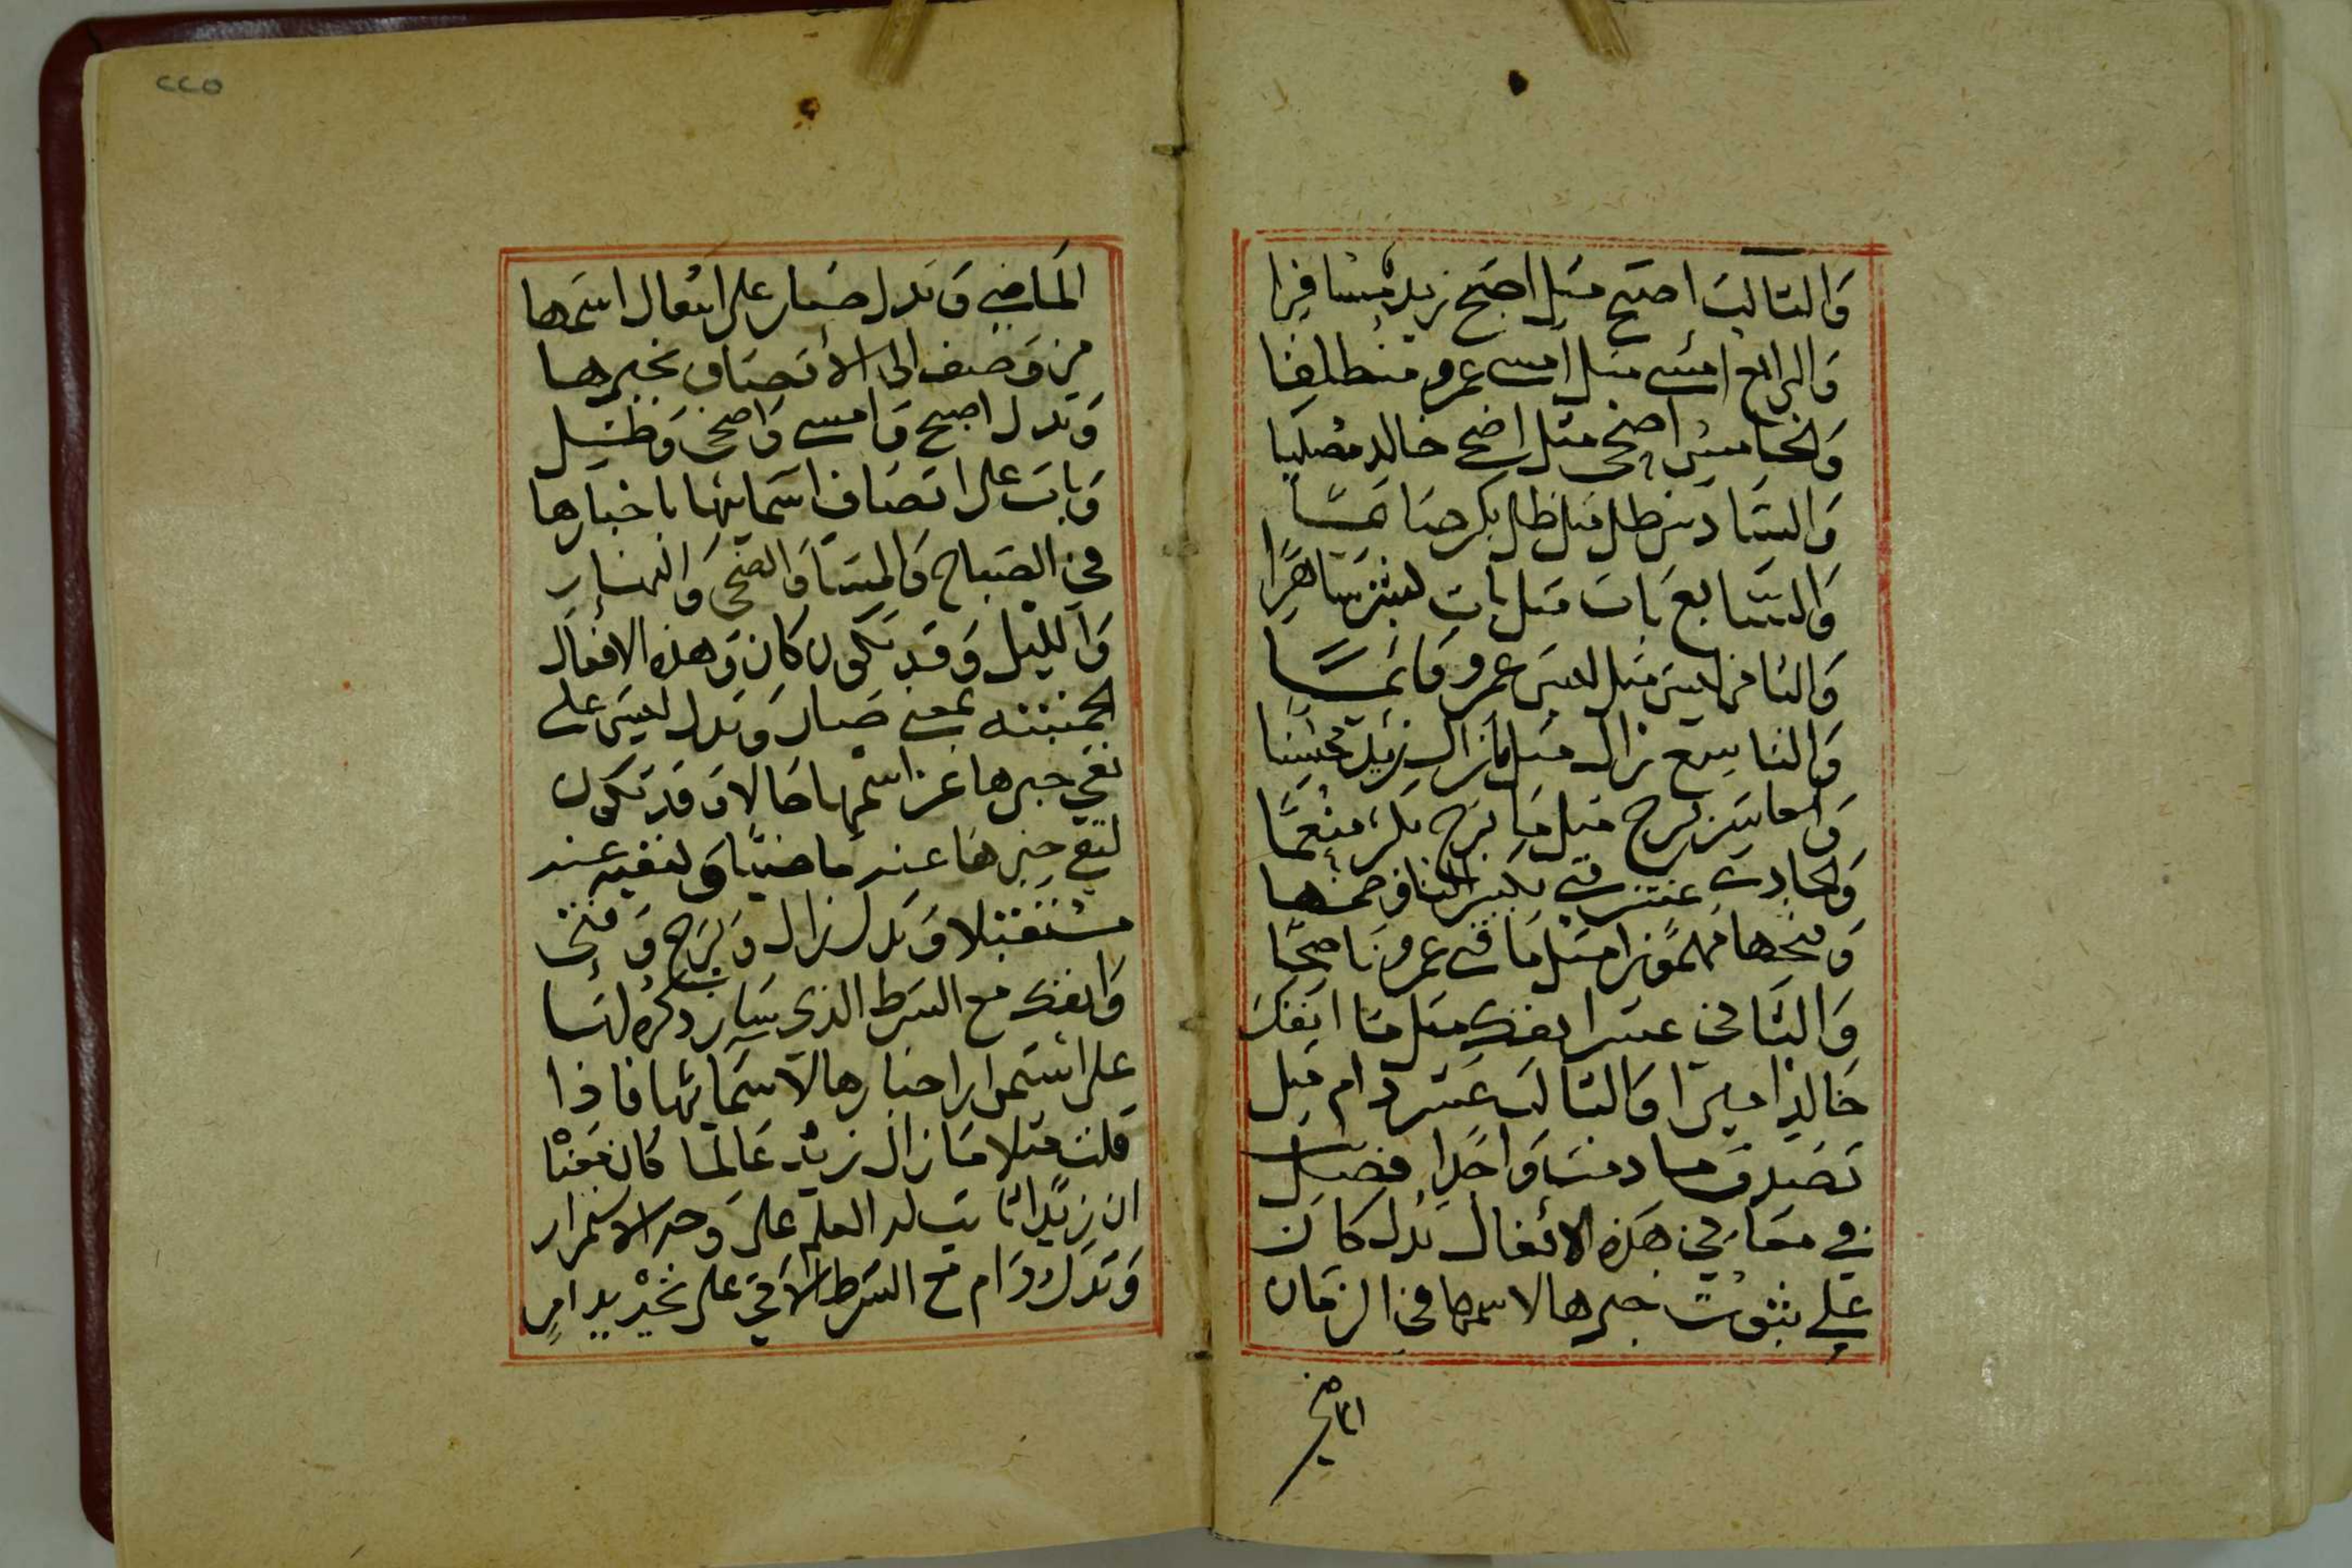 والثالث اصبح مثل اصبح زيد مسافرا
والرابع امسى مثل امسى عمرو منطلقا
والخامس اضحى مثل اضحى خالد مصليا
والسادس ظل مثل ظل بكر صائما
والسابع بات مثل بات بشر ساهرا
والثامن ليس مثل ليس عمرو قائما
والتاسع زال مثل مازال زيد محسنا
والعاشر برح مثل ما برح بكر منعما
والحادي عشر فتي بكسر التا وضمها
وفتحها مهموزا مثل ما فتي عمرو ناصحا
والثاني عشر انفك مثل ما انفك
خالد اميرا والثالث عشر دام مثل
تصدق ما دمت واجدا فصل
في معاني هذه الافعال تدل كان
على ثبوت خبرها لاسمها في الزمان
الماضي
الماضي وتدل صار على انتقال اسمها
من وصف الى الاتصاف بخبرها
وتدل اصبح وامسى واضحى وظل
وبات على اتصاف اسمائها باخبارها
في الصباح والمسا والضحى والنهار
والليل وقد تكون كان وهذه الافعال
الخمسة بمعنى صار وتدل ليس على
نفي خبرها عن اسمها حالا وقد تكون
لنفي خبرها عنه ماضيا ولنفيه عنه
مستقبلا وتدل زال وبرح وفتى
وانفك مع الشرط الذي سياتي ذكره لها
على استمرار اخبارها لاسمائها فاذا
قلت مثلا ما زال زيد عالما كان معنا
ان زيدا ثابت له العلم على وجه الاستمرار
وتدل دام مع الشرط الاتي على تحديد امر
٢٢٥